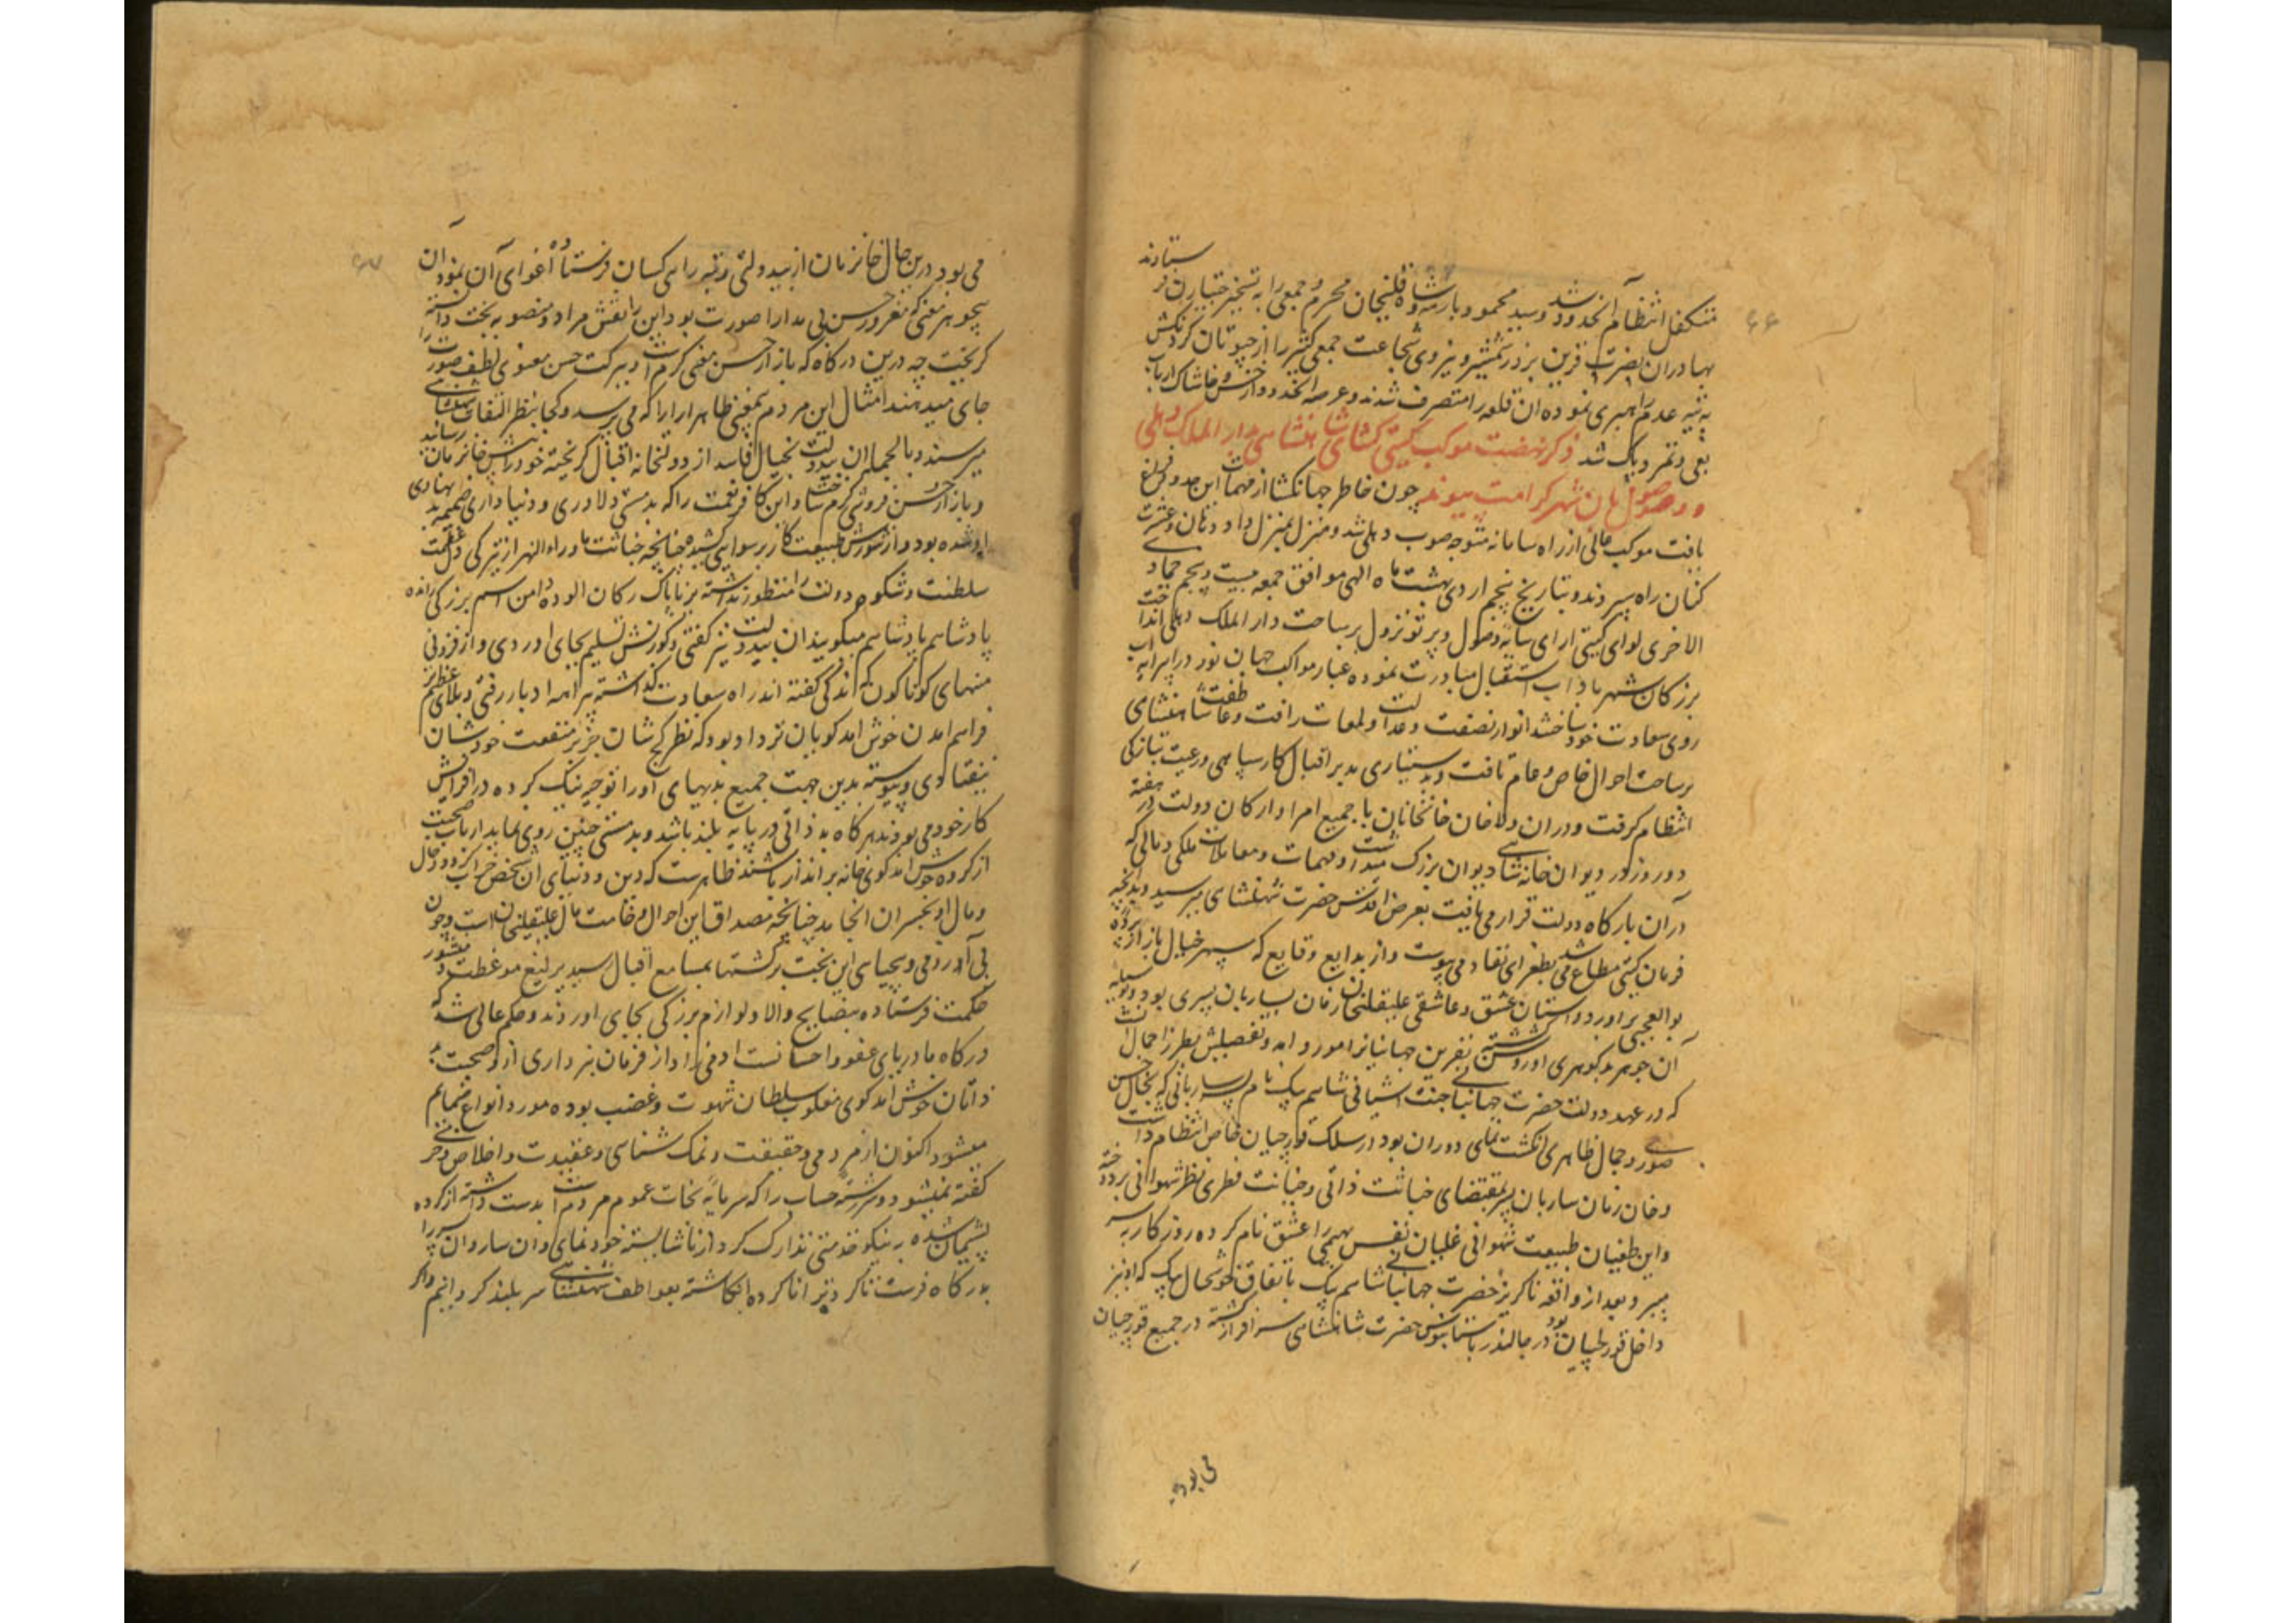 ۶۶
ستادند
متکفل انتظام آنحدود شد و سید محمود بارهه و شاه قلیخان محرم و جمعی را به تسخیر جیتارن فر
بهادران نصرت قرین بزور شمشیر و نیروی شجاعت جمعی کثیر را از رجپوتان گردنکش
به تیه عدم راهبری نموده ان قلعه را متصرف شدند و عرصه انحدود از خس و خاشاک ارباب
بغی و تمرد پاک شد ذکر نهضت موکب گیتی گشای شاهنشاهی بدار الملک دهلی
و وصول بان شهر کرامت پیوند چون خاطر جهانگشا از مهمات این حدود فراغ
یافت موکب عالی از راه سامانه متوجه صوب دهلی شد و منزل بمنزل داد دهان و عشرت
کنان راه سپردند و بتاریخ پنجم اردی بهشت ماه الهی موافق جمعه بیست و پنجم جمادی
الاخری لوای گیتی ارای سایه وصول و پرتو نزول بر ساحت دار الملک دهلی انداخت
بزرگان شهر باداب استقبال مبادرت نموده غبار مواکب جهان نورد را پیرایه
روی سعادت خود ساختند انوار نصفت و عدالت و لمعات رافت و عاطفت شاهنشاهی
بر ساحت احوال خاص و عام تافت و بدستیاری مدبر اقبال کار سپاهی و رعیت بتازگی
انتظام گرفت و دران ولا خان خانخانان با جمیع امرا و ارکان دولت در هفته
دو روز در دیوان خانه شاهی دیوان بزرگ میداشت و مهمات و معاملات ملکی و مالی که
دران بارگاه دولت قرار می یافت بعرض اقدس حضرت شهنشاهی میرسید و بدانچه
فرمان گیتی مطاع می شد بطغرای نفاد می پیوست و از بدایع وقایع که سپهر خیال باز از پرده
بوالعجبی براورد داستان عشق و عاشقی علیقلیخان خانزمان بساربان پسری بود و بوسیله
آن جوهر بدگوهری او روشن گشته نفرین جهانیانرا مورد امد و تفصیلش بطرز اجمال انست
که در عهد دولت حضرت جهانبانی جنت اشیانی شاهم بیک نام پسر ساربانی که بجمال حسن
صوری و جمال ظاهری انگشت نمای دوران بود در سلک قورچیان خاص انتظام داشت
و خان زمان ساربان پسر بمقتضای خباثت ذاتی و خیانت فطری نظر شهوانی بر دوخته
و این طغیان طبیعت شهوانی غلیان نفس بهیمی را عشق نام کرده روزگار بسر
میبرد و بعد از واقعه ناگزیر حضرت جهانبانی شاهم بیک باتفاق خوشحال بیک که او نیز
داخل قورچیان بود در جالندر باستانبوس حضرت شاهنشاهی سرافراز گشته در جمیع قورچیان
می بود
۶۷
می بود درین حال خانزمان از بیدولتی و تیره رایی کسان فرستاده اغوای آن نمود آن
هیچ هنر معنی که مغرور حسن بی مدار صورت بود این را نقش مراد و منصوبه بخت دانسته
گریخت چه درین درگاه که بازار حسن معنی گرم است و ببرکت حسن معنوی لطف صورت را
جای میدهند امثال این مردم بمعنی ظاهر ارا را که می پرسد و کجا بنظر التفات شهنشاهی
میرسند و بالجمله ان بیدولت بخیال فاسد از دولتخانه اقبال گریخته خود را پیش خانزمان رساند
و بازار حسن فروشی گرم ساخت و این کافر نعمت را که بدمستی دلاوری و دنیاداری ضمیمه بدنهادی
او شده بود و از شورش طبیعت کار برسوایی کشیده چنانچه خباثت ماوراء النهر از تیرگی و غفلت
سلطنت و شکوه دولت را منظور نداشته بر ناپاک رکان الوده دامن اسم بزرگی رانده
پادشاهم پادشاهم میگویند ان بیدولت نیز گفتی و کورنش تسلیم بجای اوردی و از فزونی
منهای گوناگون که اندکی گفته اند راه سعادت گذاشته براهمه ادبار رفتی و بلای عظیم تر
فراهم امدن خوش امد گویان نزد او بود که نظر کج شان جز بر منفعت خود شان
نیفتادی و پیوسته بدین جهت جمیع بدیهای او را توجیه نیک کرده در افزایش
کار خود می بودند هرگاه بد ذاتی در پایه بلند باشد و بدمستی چنین روی نماید ارباب صحبت
از گروه خوش امد گوی خانه برانداز باشند ظاهرست که دین و دنیای ان شخص خراب گردد و حال
و مال او بخسران انجامد چنانچه مصداق این احوال وخامت مآل علیقلیخان است و چون
بی آزرمی و بیحیایی این بخت برگشتها بمسامع اقبال رسید یرلیغ موعظت و منشور
حکمت فرستاده نصایح والا و لوازم بزرگی بجای اوردند و حکم عالی شد که
درگاه ما دریای عفو و احسانست
ذاتان خوش امد گوی مغلوب سلطان شهوت و غضب بوده مورد انواع شمایم
میشود اکنون از مردمی و حقیقت و نمک شناسی و عقیدت و اخلاص حرفی
گفته نمیشود و سررشته حساب را که سرمایه نجات عموم مردم است بدست داشته از کرده
پشیمان شده به نیکو خدمتی تدارک کردار ناشایسته خود نمای و ان ساروان پسر را
بدرگاه فرست تا کردنیرا ناکرده انگاشته بعواطف شهنشاهی سر بلند گردانیم و اگر